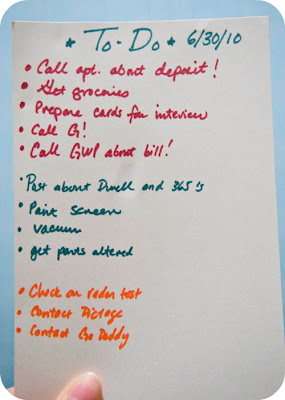 * To-Do * 6/30/10
• Call apt. about deposit!
• Get groceries
• Prepare cards for interview
• Call G!
• Call GWP about bill!
• Post about Dwell and 365's
• Paint screen
• Vacuum
• get pants altered
• Check on radon test
• Contact
• Contact Go Daddy